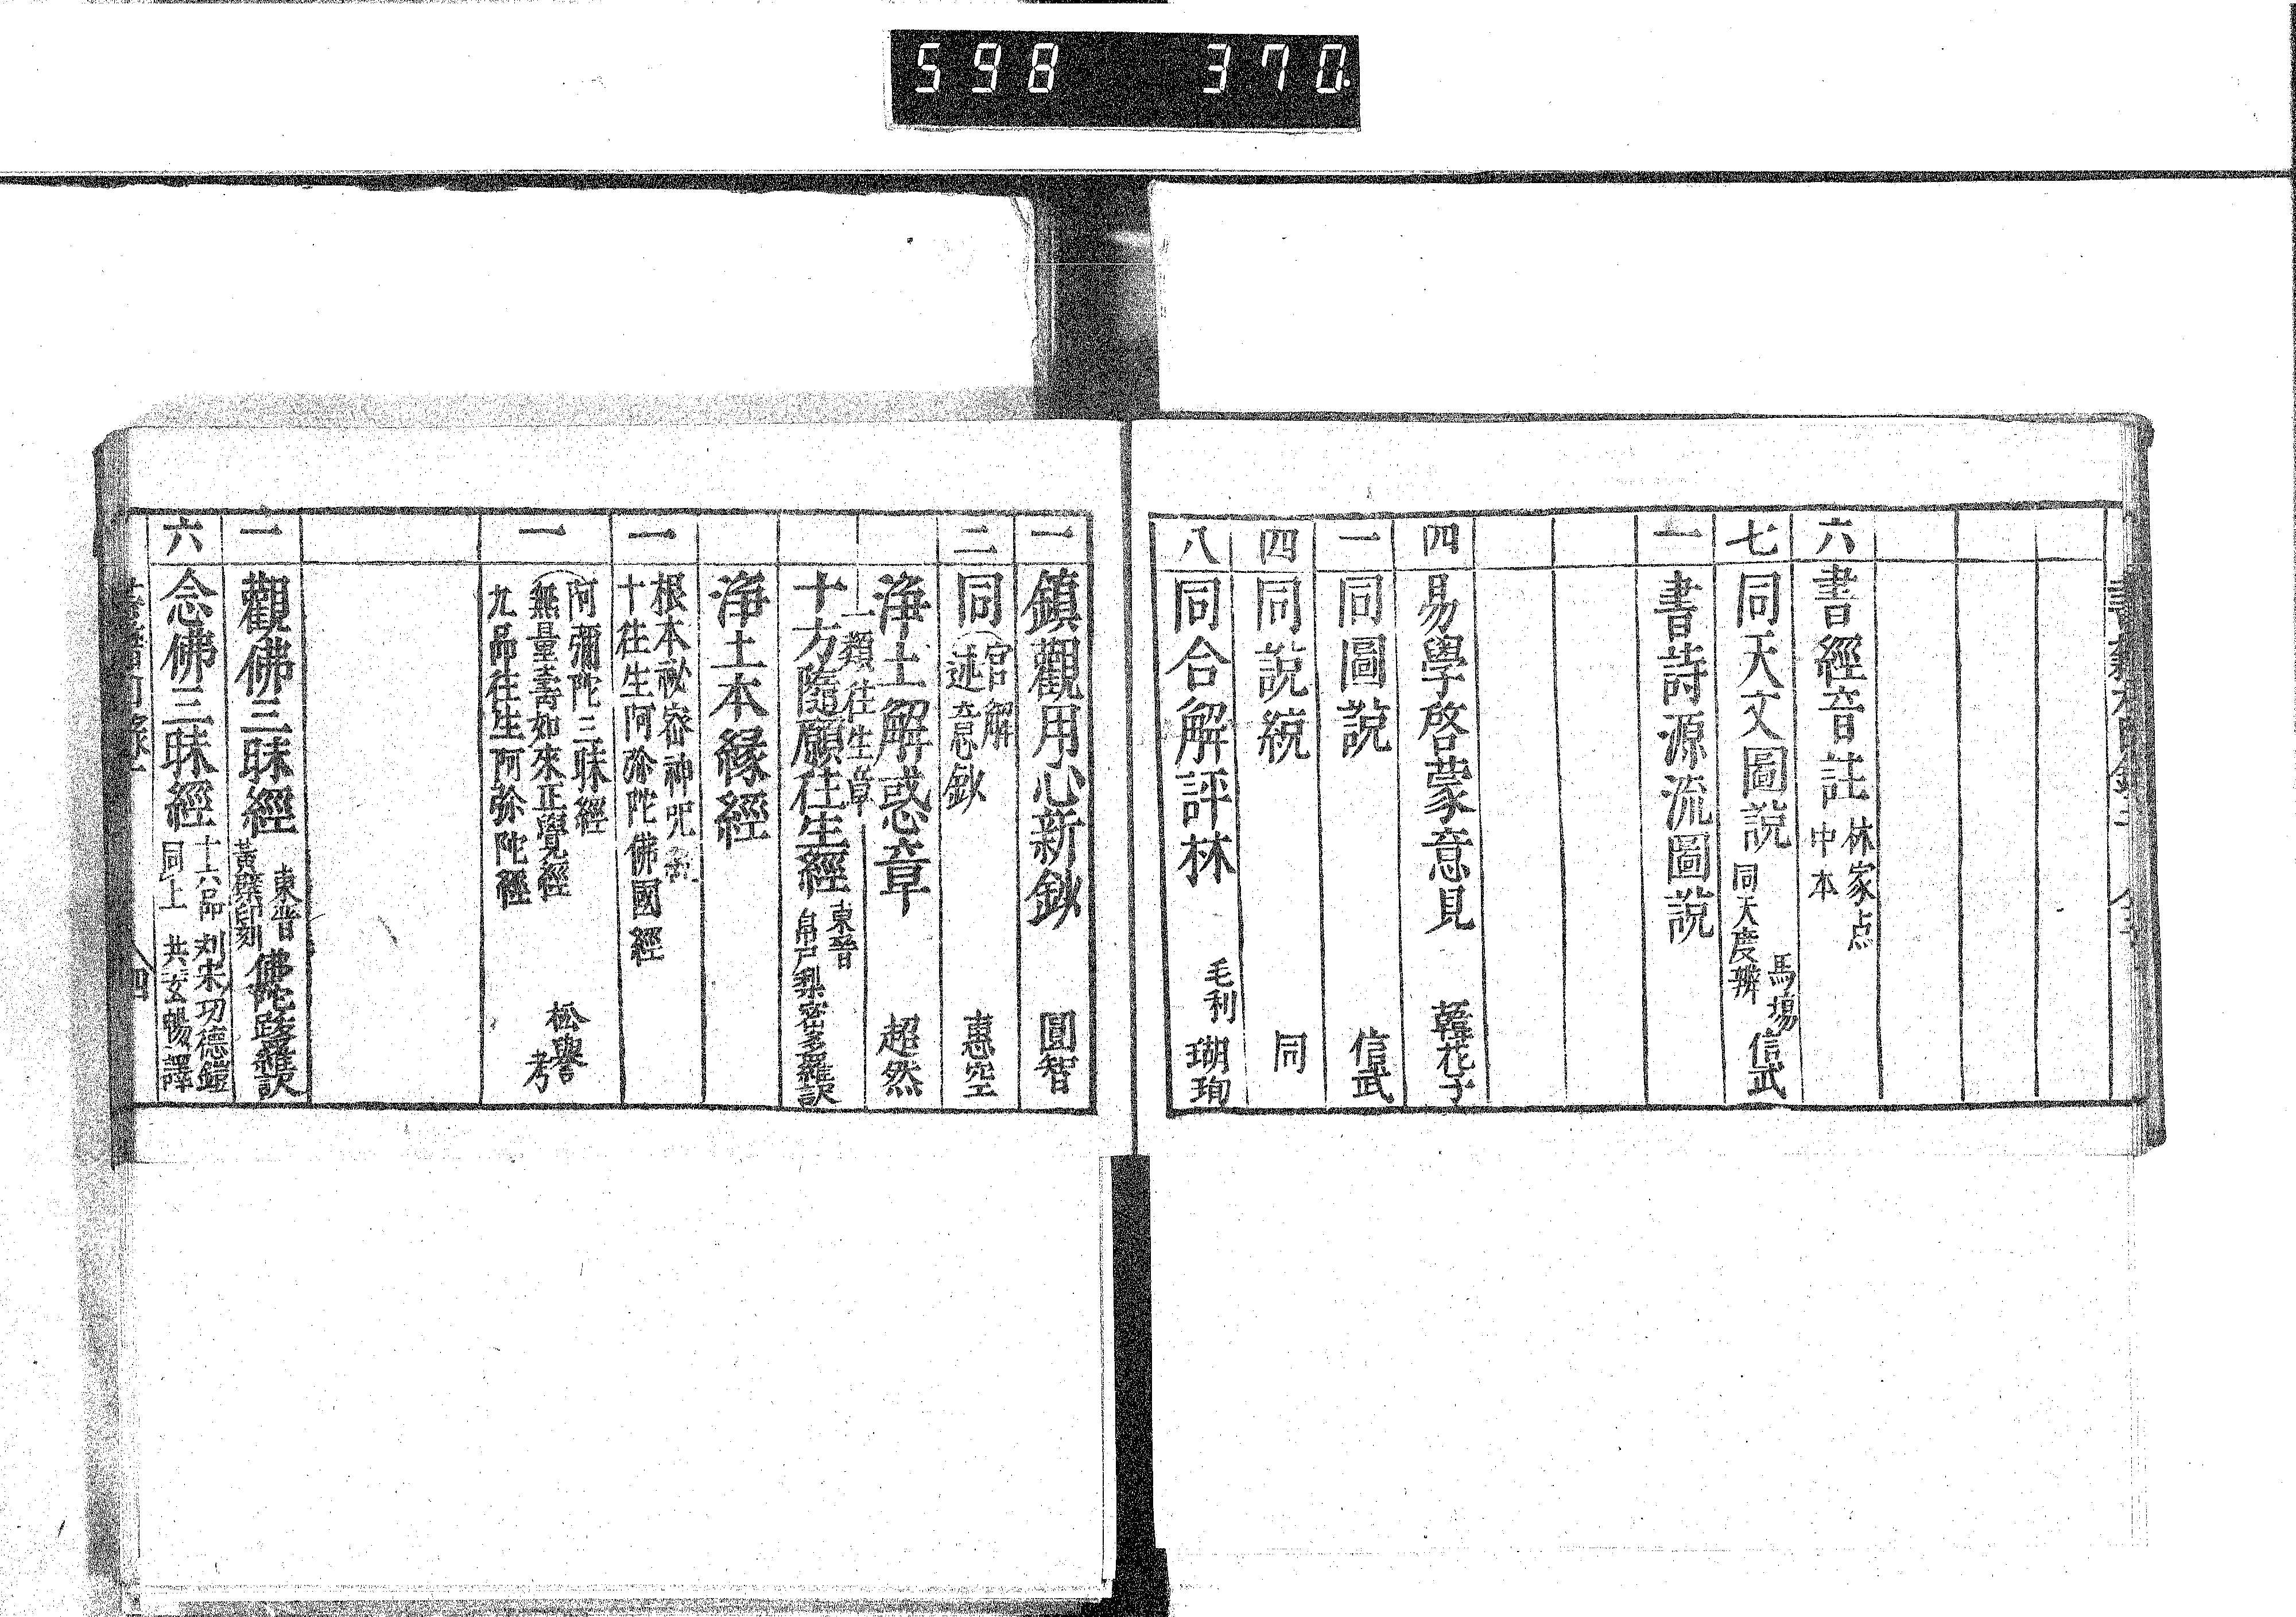 598 370
六 書經音註 林家点
中本
七 同天文圖説 同天度辨 馬場信武
一 書詩源流圖説
四 易學啓蒙意見 韓花子
一 同圖説 信武
四 同説統 同
八 同合解評林 毛利瑚珣
一 鎮觀用心新鈔 圓智
二 同 官解
述意鈔 惠空
淨土解惑章 超然
一類往生章
十方隨願往生經 東晉
帛尸梨密多羅譯
淨土本緣經
一 根本祕密神咒
十往生阿弥陀佛國經
一 阿彌陀三昧經
無量壽如來正覺經
九品往生阿弥陀經 松譽考
一 觀佛三昧經 東晉
黄檗印刻 佛陀跋羅譯
六 念佛三昧經 十六品 刘宋功德鎧
同上 共玄暢譯
四